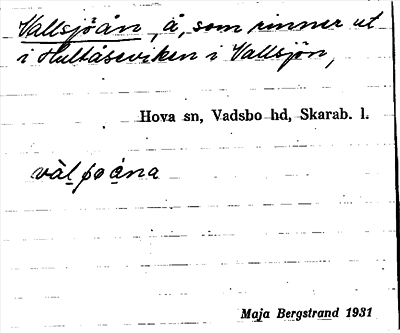 Vallsjöån, å, som rinner ut
i Hultåseviken i Vallsjön,
Hova sn, Vadsbo hd, Skarab. l.
Maja Bergstrand 1931